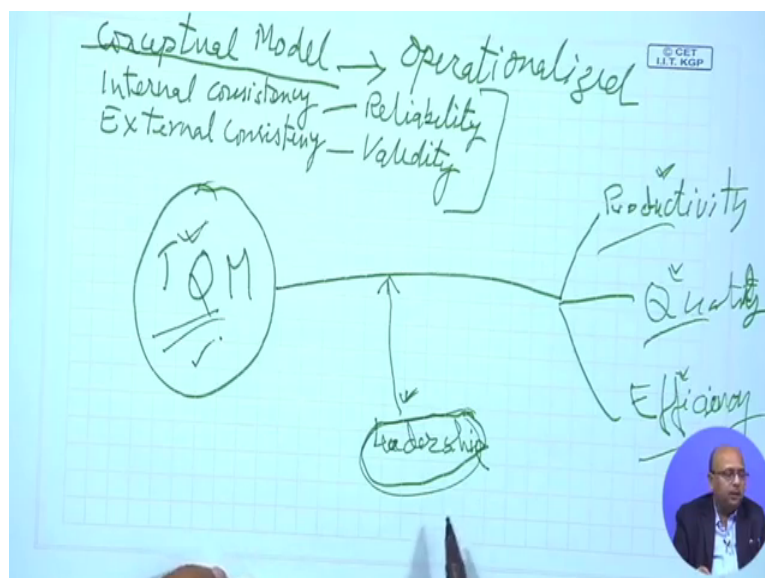 Conceptual Model → Operationalized
© CET
I.I.T. KGP
Internal Consistency — Reliability
External Consisteny — Validity
TQM
Productivity
Quality
Efficiency
Leadership